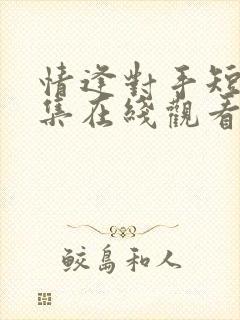 情逢對手短
集在綫觀看
鮫島和人